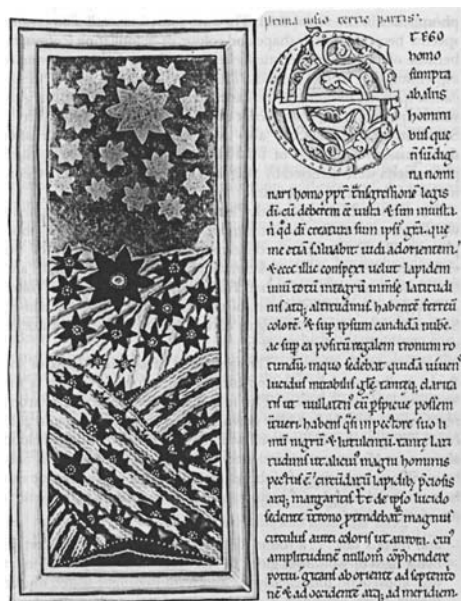 prima uisio tertie partis:
ET EGO
homo
sumpta
ab aliis
homini
bus que
n̄ sū dig
na nomi
nari homo ppt̄ tͣnsgressionē legis
di. cū deberem eē iusta & sim iniusta.
n̄ qd̄ di creatura sum ipsiˀ grā. que
me etiā saluabit. uidi ad orientem.
& ecce illic conspexi uelut lapidem
unū totū integrū immse latitudi
nis atq; altitudinis habentē ferreū
colorē. & sup ipsum candidā nubē.
ac sup eā positū regalem tronum ro
tundū. in quo sedebat quidā uiuenˢ
lucidus mirabilis glē. tanteq; clarita
tis ut nullatenˀ eū pspicue possem
intueri. habens qͣsi in pectore suo li
mū nigrū & lutulentū. tante lati
tudinis ut alicuiˀ magni hominis
pectus ē. circūdatū lapidib; pciosis
atq; margaritis. Et de ipso lucido
sedente in trono ptendebat᷑ magnus
circulus aurei coloris ut aurora. cuiˀ
amplitudinē nullom̊ cōphendere
potui. girans ab oriente ad septemtͦo
nē & ad occidentē atq; ad meridiem.